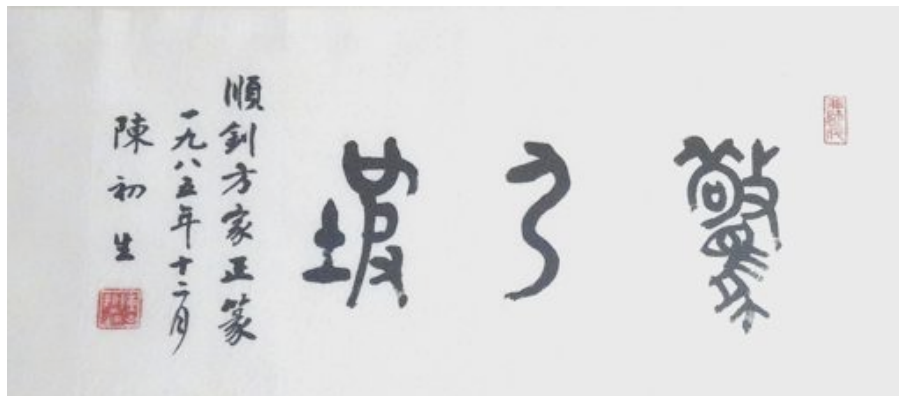 驚乃坡
順釗方家正篆
一九八五年十二月
陳初生